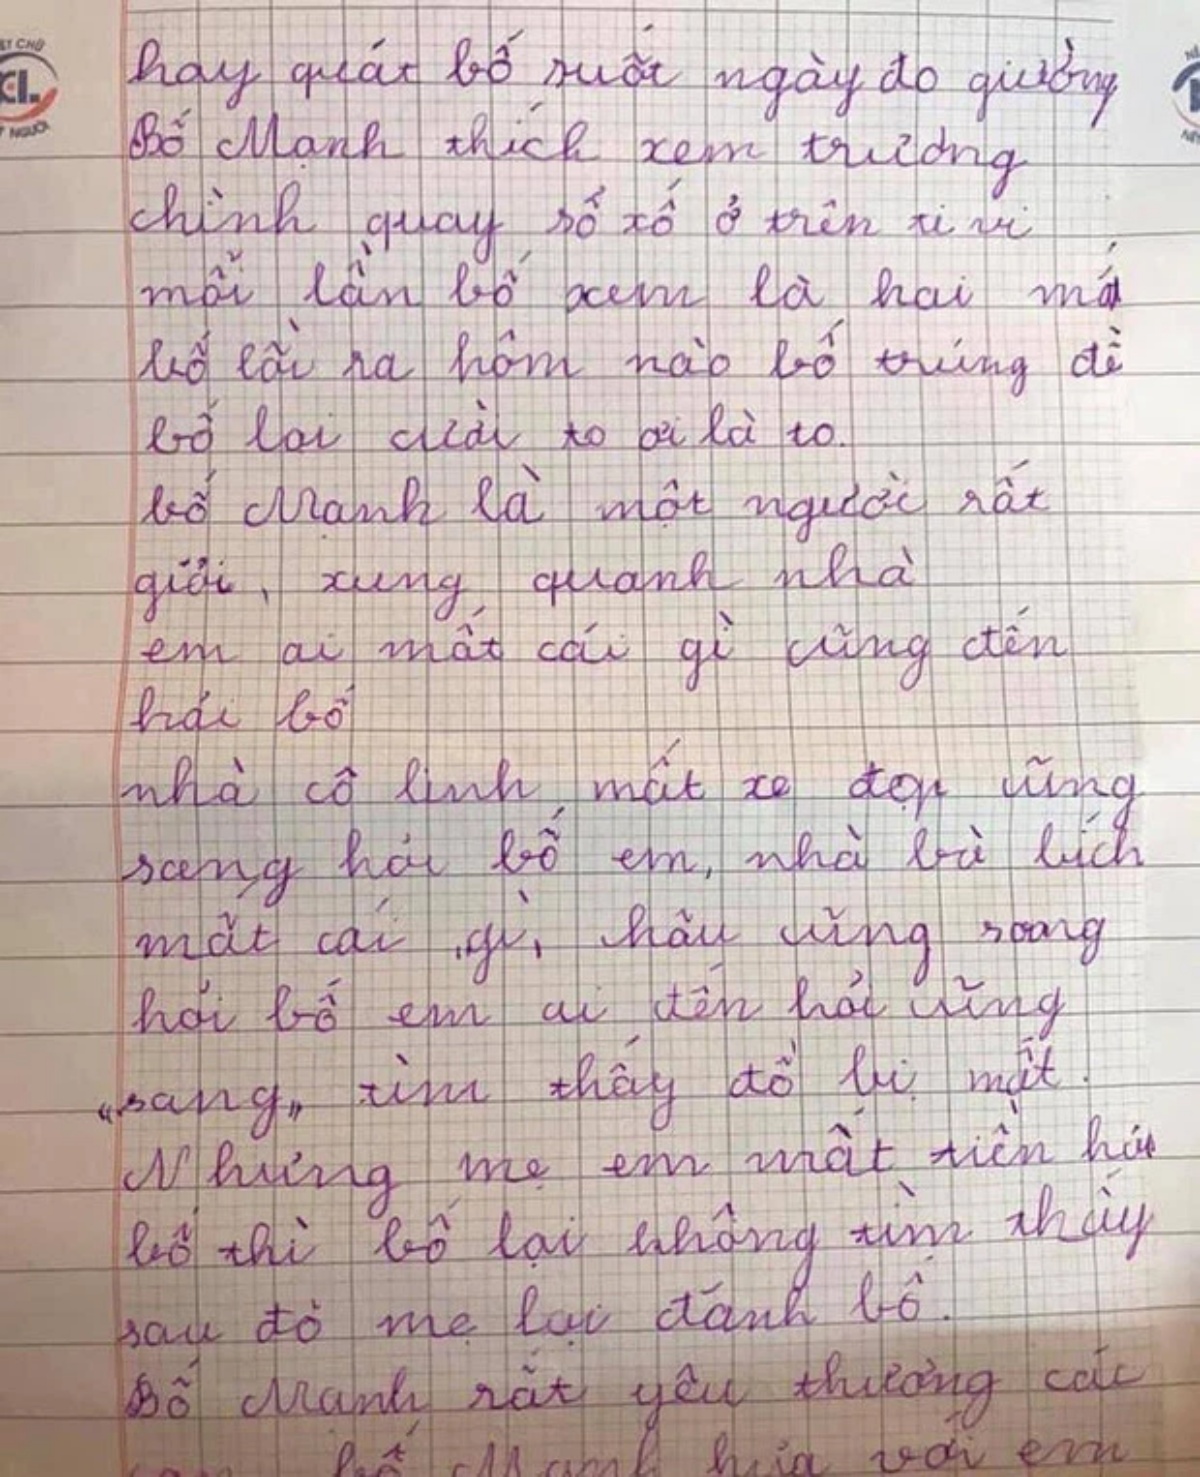 hay quát bố suốt ngày do giường
Bố Mạnh thích xem trương
chình quay số xố ở trên ti vi
mỗi lần bố xem là hai má
bố lồi ra hôm nào bố trúng đề
bố lại cười to ơi là to.
bố Mạnh là một người rất
giỏi, xung quanh nhà
em ai mất cái gì cũng đến
hỏi bố
nhà cô linh mất xe đạp cũng
sang hỏi bố em, nhà bà bích
mất cái gì, hầu cũng soang
hỏi bố em ai đến hỏi cũng
"sang" tìm thấy đồ bị mất.
Nhưng mẹ em mất tiền hỏi
bố thì bố lại không tìm thấy
sau đó mẹ lại đánh bố.
Bố Mạnh rất yêu thương các
bố Mạnh hứa với em
CHỮ
NGƯỜI